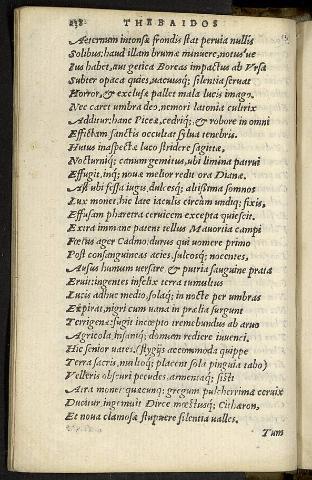 238 THEBAIDOS
Aeternum intonsæ frondis stat peruia nullis
Solibus: haud illam brumæ minuere, notus'ue
Ius habet, aut getica Boreas impactus ab Vrsa
Subter opaca quies, uacuusq; silentia seruat
Horror, & exclusæ pallet mala lucis imago.
Nec caret umbra deo, nemori latonia cultrix
Additur: hanc Piceæ, cedriq;, & robore in omni
Effictam sanctis occultat sylua tenebris.
Huius inaspectæ luco stridere sagittæ,
Nocturniq; canum gemitus, ubi limina patrui
Effugit, inq; nouæ melior redit ora Dianæ.
Ast ubi fessa iugis, dulcesq; altissima somnos
Lux mouet, hic late iaculis circùm undiq; fixis,
Effusam pharetra ceruicem excepta quiescit.
Extra immane patent tellus Mauortia campi
Fœtus ager Cadmo: durus qui uomere primo
Post consanguineas acies, sulcosq; nocentes,
Ausus humum uersare & putria sanguine prata
Eruit: ingentes infelix terra tumultus
Lucis adhuc medio, solaq; in nocte per umbras
Expirat, nigri cum uana in prælia surgunt
Terrigenæ: fugit incœpto tremebundus ab aruo
Agricola, insaniq; domum rediere iuuenci.
Hic senior uates: (stygijs accommoda quippe
Terra sacris, multoq; placent sola pinguia tabo)
Velleris obscuri pecudes, armentaq; sisti
Atra monet: quæcunq; gregum pulcherrima ceruix
Ducitur, ingemuit Dirce mœstusq; Cithæron,
Et noua clamosæ stupuere silentia ualles.
Tum